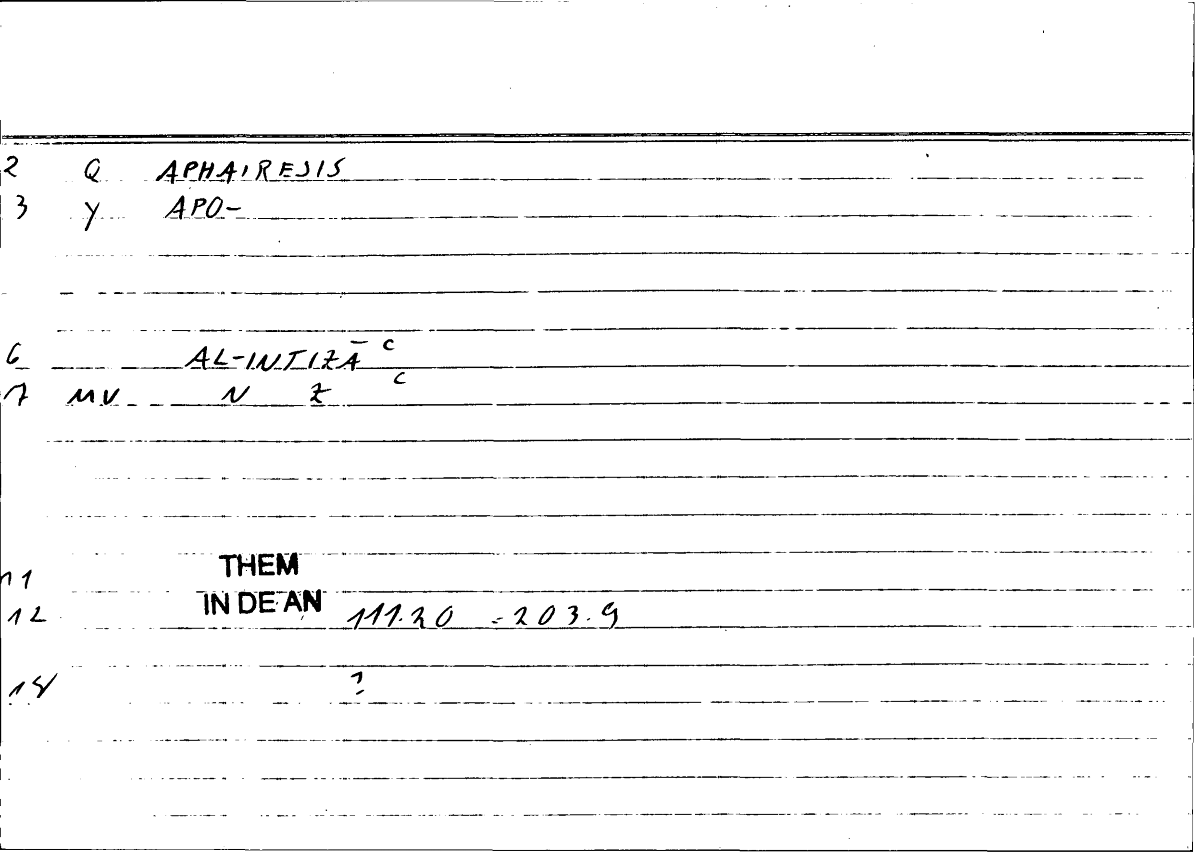 2 Q APHAIRESIS
3 Y APO-
6 AL-INTIZĀ c
7 MV N Z c
11 THEM
12 IN DE AN 111.20 = 203.9
18 ?